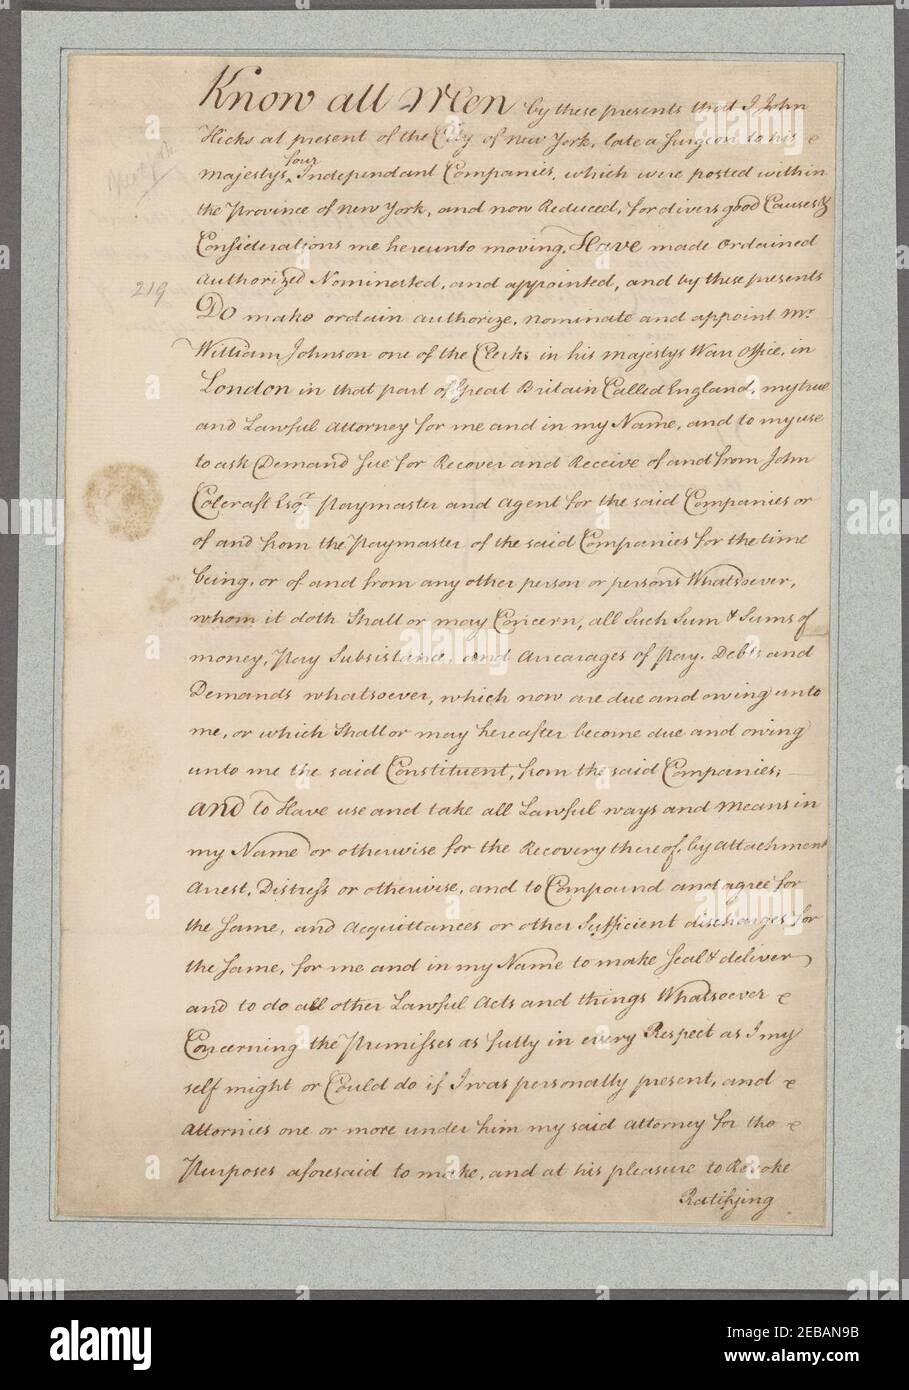 Know all Men by these presents that I John
Hicks at present of the City of New York, late a Surgeon to his
Majestys four Independant Companies, which were posted within
the Province of New York, and now Reduced, for divers good Causes &
Considerations me hereunto moving, Have made Ordained
Authorized Nominated, and appointed, and by these presents
219
Do make ordain authorize, nominate and appoint Mr
William Johnson one of the Clerks in his Majestys War Office, in
London in that part of Great Britain Called England, my true
and Lawful Attorney for me and in my Name, and to my use
to ask Demand sue for Recover and Receive of and from John
Colcraft Esqr. Paymaster and Agent for the said Companies or
of and from the Paymaster of the said Companies for the time
being, or of and from any other person or persons Whatsoever,
whom it doth Shall or may Concern, all Such Sum & Sums of
money, Pay Subsistance, and Arrearages of Pay, Debts and
Demands whatsoever, which now are due and owing unto
me, or which Shall or may hereafter become due and owing
unto me the said Constituent, from the said Companies;
And to Have use and take all Lawful ways and Means in
my Name or otherwise for the Recovery thereof, by Attachment
Arrest, Distress or otherwise, and to Compound and agree for
the Same, and Acquittances or other Sufficient discharges for
the Same, for me and in my Name to make Seal & deliver
and to do all other Lawful Acts and things Whatsoever
Concerning the Premisses as fully in every Respect as I my
self might or Could do if I was personally present, and
Attornies one or more under him my said Attorney for the
Purposes aforesaid to make, and at his pleasure to Revoke
Ratifying
alamy
Image ID: 2EBAN9B
www.alamy.com